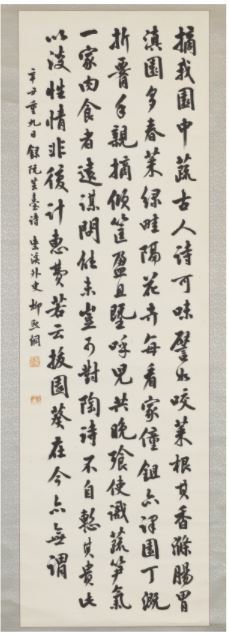 摘我園中蔬古人詩可味譬如咬菜根其香滌腸胃
滇園多春菜綠畦隔花卉每看家僮鉏亦課園丁溉
手親摘傾筐盈且塈呼兒共晚飧使識蔬筍氣
一家肉食者遠謀問能未豈可對陶詩不自慙其貴此
以淡性情非後計惠費若云拔園葵在今亦無謂
辛丑重九日錄阮芸臺詩 溪外史柳